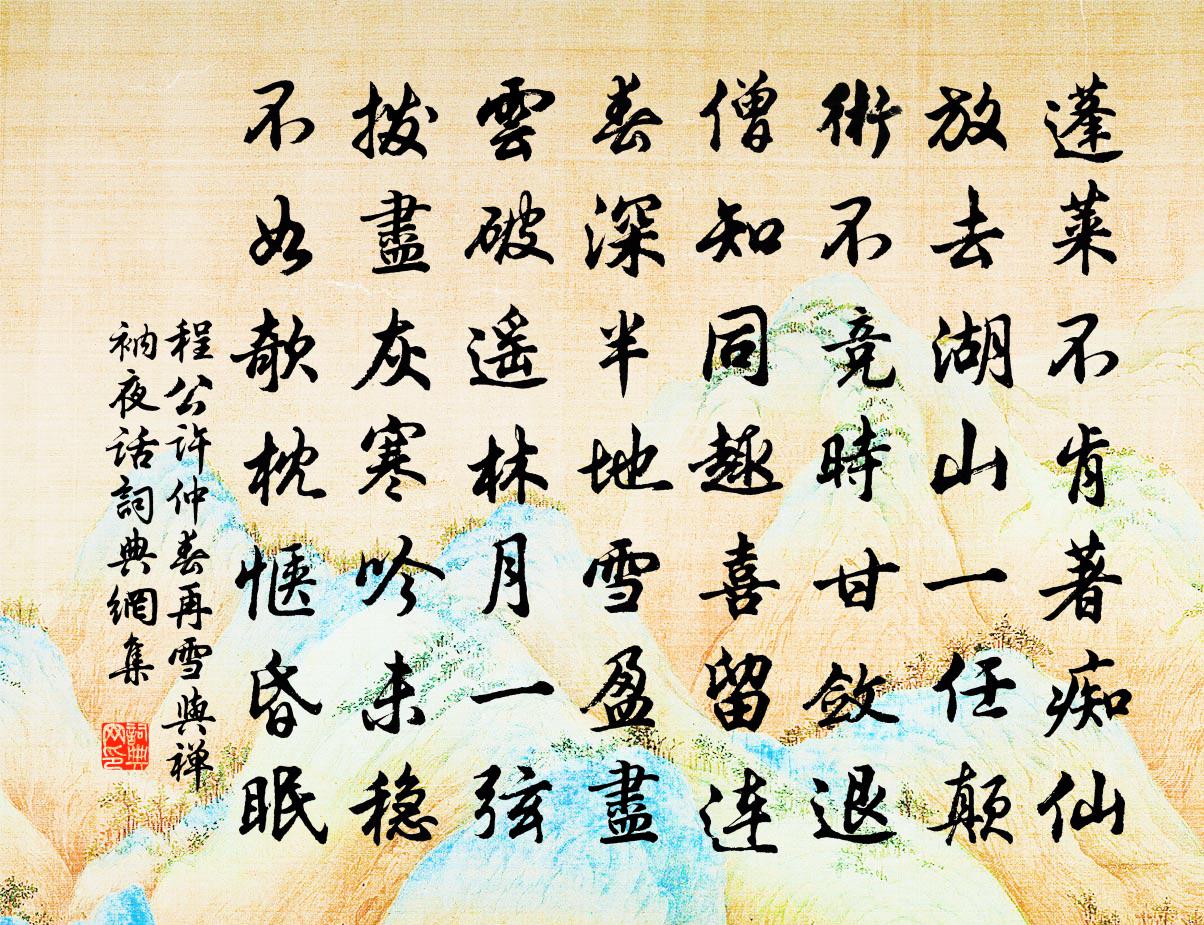 蓬莱不肯著痴仙
放去湖山一任颠
術不竞時甘敛退
僧知同趣喜留连
春深半地雪盈盡
雲破遥林月一弦
拨盡灰寒吟未稳
不如欹枕惬昏眠
程公许仲春再雪與禅
衲夜话詞典網集
詞典网印